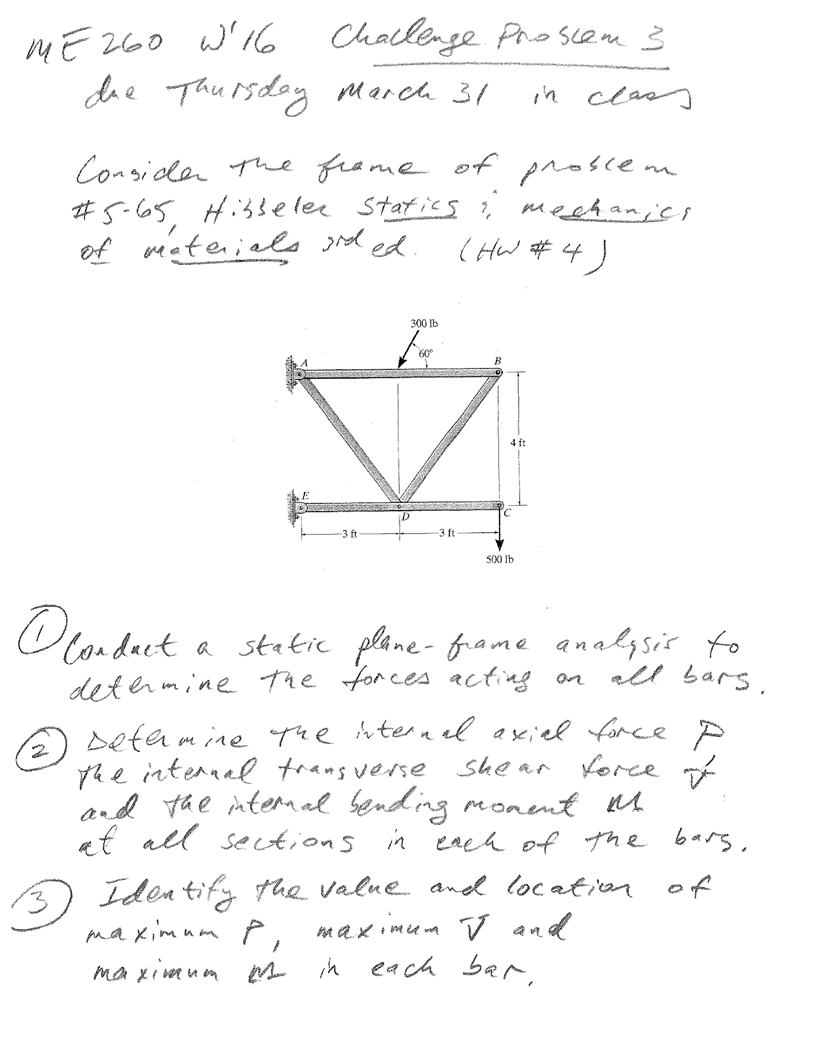 ME 260 W'16 Challenge Problem 3
due Thursday March 31 in class
Consider the frame of problem
#5-65, Hibbeler Statics & mechanics
of materials 3rd ed. (HW #4)
300 lb
60°
A
B
4 ft
E
D
C
3 ft
3 ft
500 lb
① Conduct a static plane-frame analysis to
determine the forces acting on all bars.
② Determine the internal axial force P
the internal transverse shear force V
and the internal bending moment M
at all sections in each of the bars.
③ Identify the value and location of
maximum P, maximum V and
maximum M in each bar.